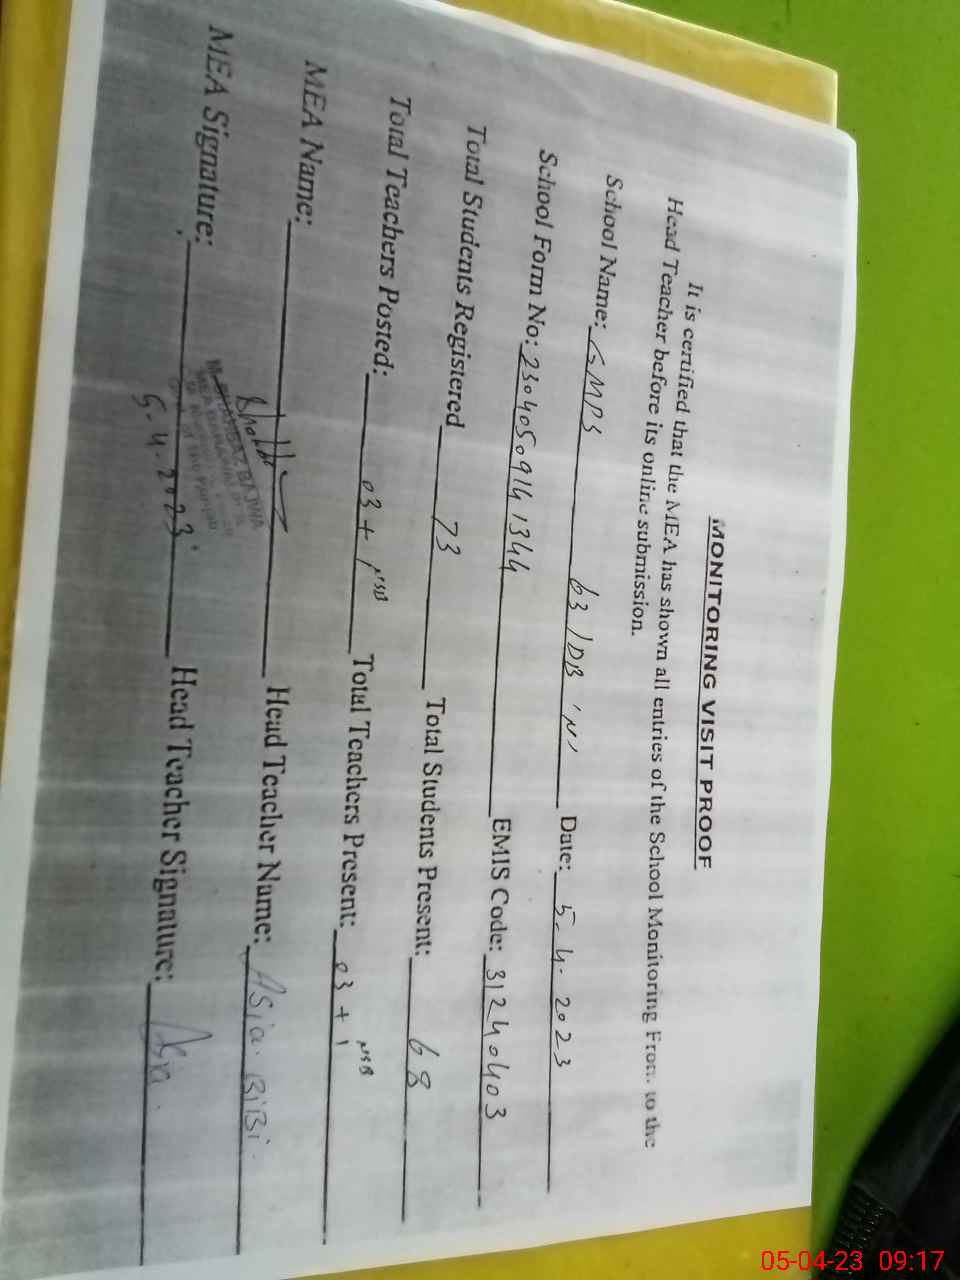 MONITORING VISIT PROOF
It is certified that the MEA has shown all entries of the School Monitoring From to the
Head Teacher before its online submission.
School Name: GMPS 63/DB 'N' Date: 5.4.2023
School Form No: 23040509141344 EMIS Code: 31240403
Total Students Registered 73 Total Students Present: 68
Total Teachers Posted: 03 + 1 NSB Total Teachers Present: 03 + 1 NSB
MEA Name: Head Teacher Name: Asia BiBi
MEA Signature: 5.4.2023 Head Teacher Signature: Asia
05-04-23 09:17